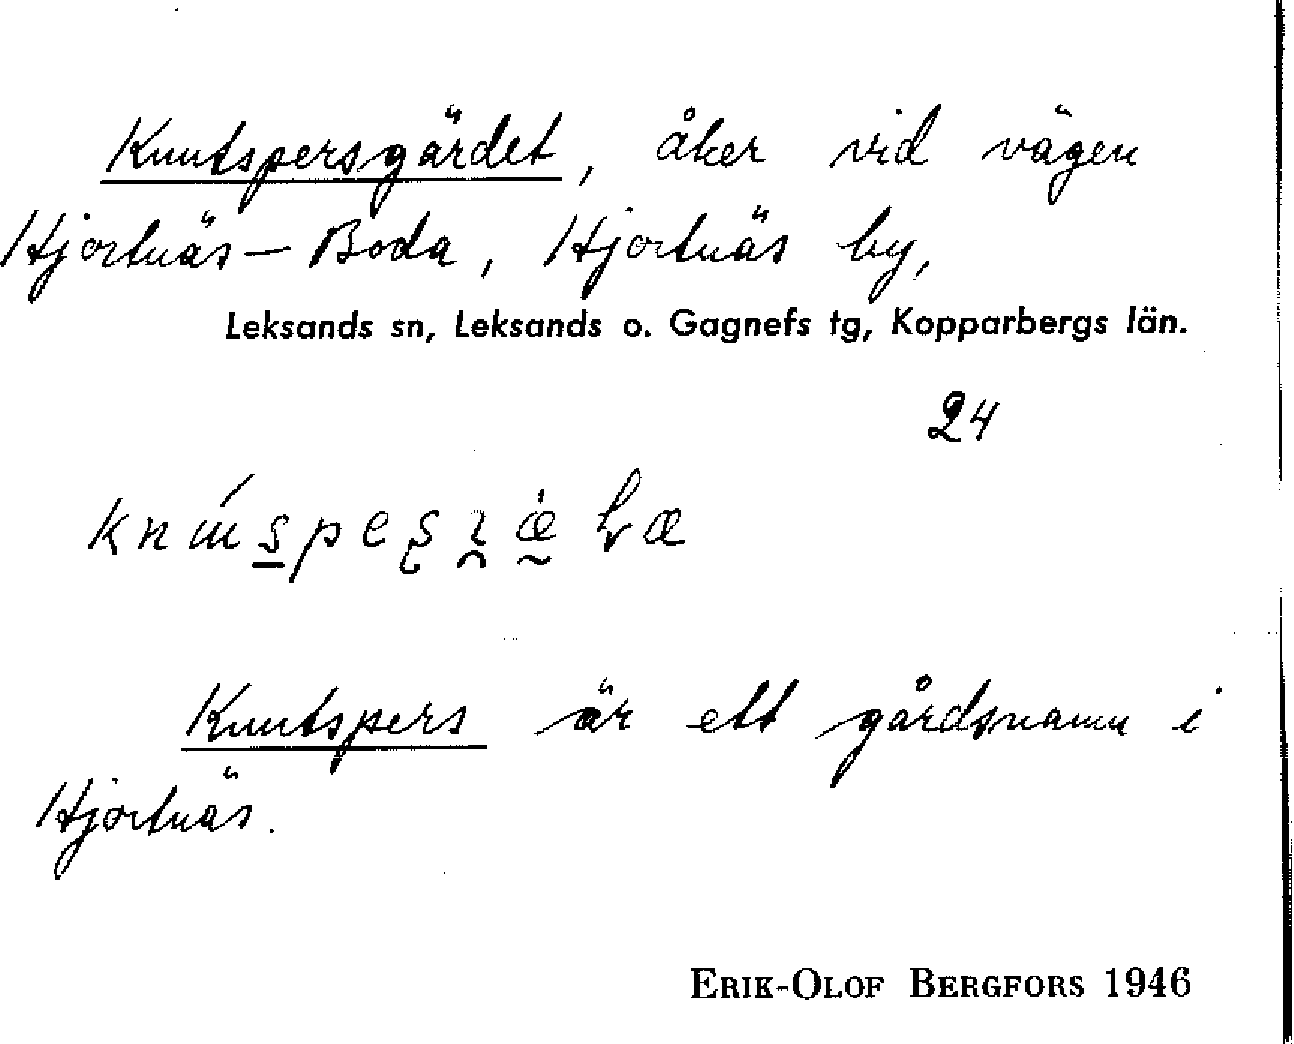 Knutspersgärdet, åker vid vägen
Hjortnäs - Boda, Hjortnäs by,
Leksands sn, Leksands o. Gagnefs tg, Kopparbergs län.
24
Knutspers är ett gårdsnamn i
Hjortnäs.
ERIK-OLOF BERGFORS 1946